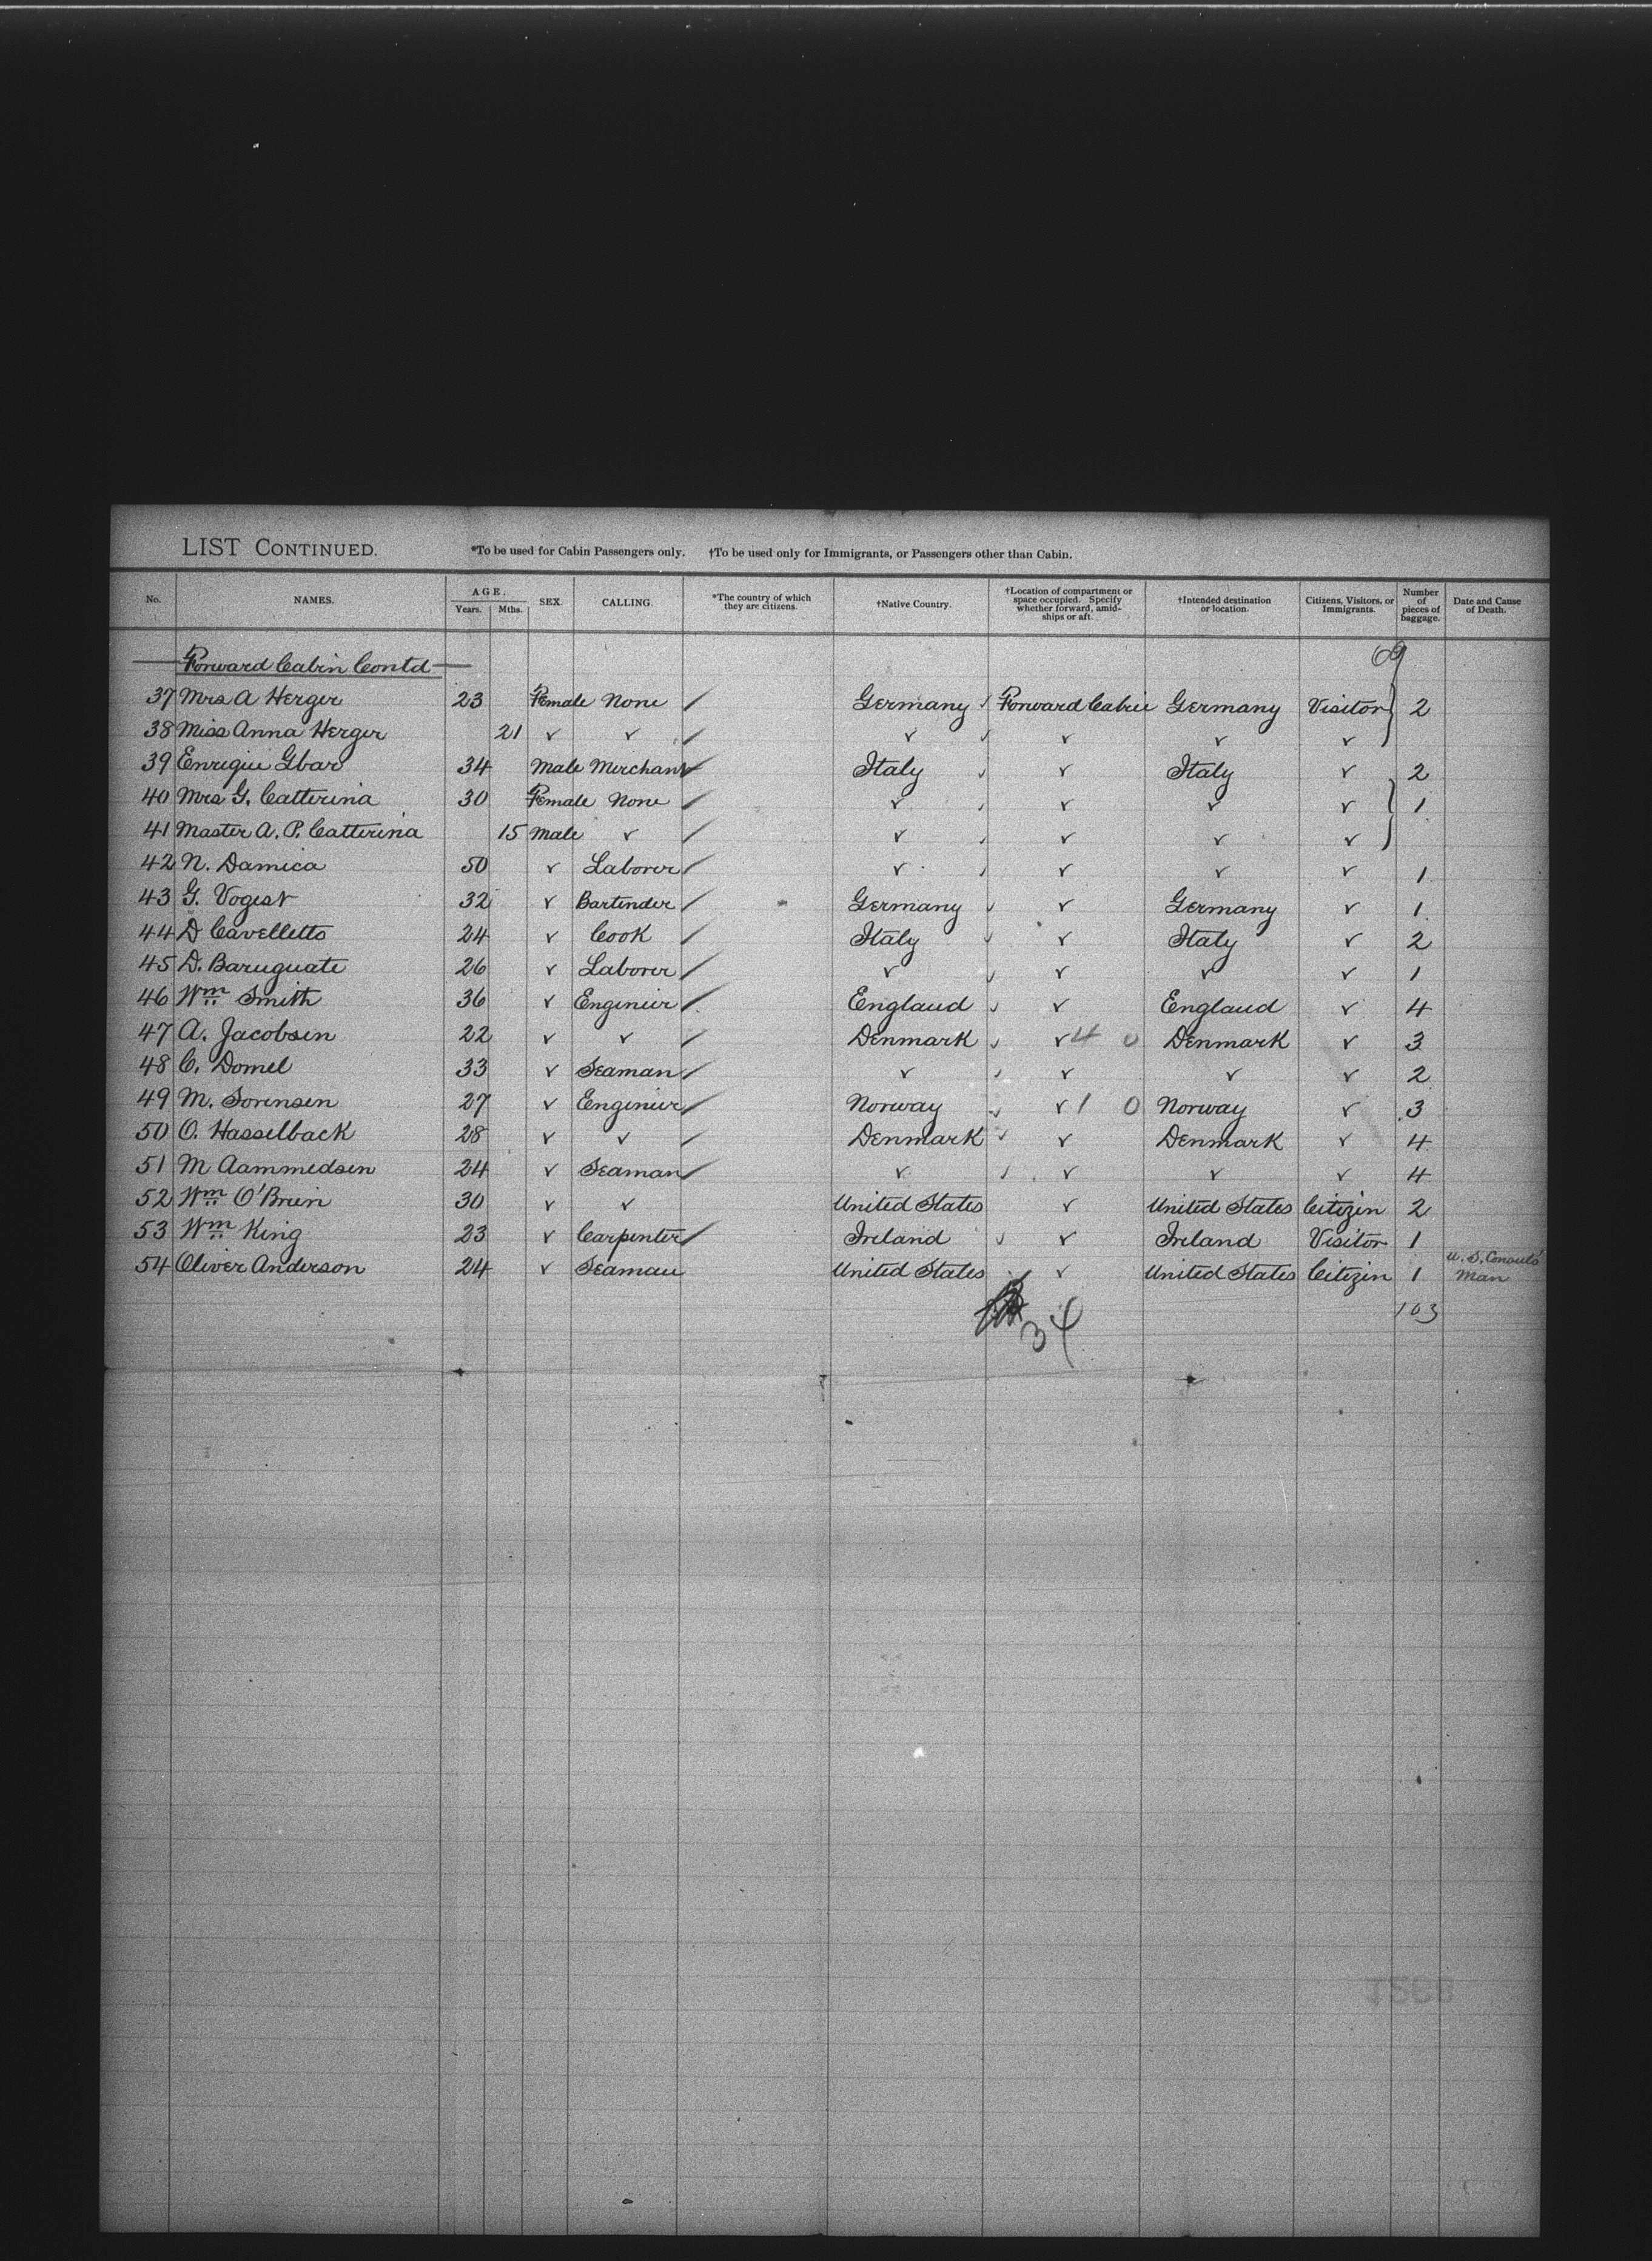 LIST CONTINUED. *To be used for Cabin Passengers only. †To be used only for Immigrants, or Passengers other than Cabin.
No. NAMES. AGE. Years. Mths. SEX. CALLING. *The country of which they are citizens. †Native Country. †Location of compartment or space occupied. Specify whether forward, amidships or aft. †Intended destination or location. Citizens, Visitors, or Immigrants. Number of pieces of baggage. Date and Cause of Death.
Forward Cabin Contd 69
37 Mrs A Herger 23 Female None / Germany ✓ Forward Cabin Germany Visitor 2
38 Miss Anna Herger 21 ✓ ✓ / ✓ ✓ ✓ ✓ ✓
39 Enrique Gbar 34 Male Merchant / Italy ✓ ✓ Italy ✓ 2
40 Mrs G. Catterina 30 Female None / ✓ ✓ ✓ ✓ ✓ 1
41 Master A. P. Catterina 15 Male ✓ / ✓ ✓ ✓ ✓ ✓
42 N. Damica 50 ✓ Laborer / ✓ ✓ ✓ ✓ ✓ 1
43 G. Vogest 32 ✓ Bartender / Germany ✓ ✓ Germany ✓ 1
44 D Cavelletto 24 ✓ Cook / Italy ✓ ✓ Italy ✓ 2
45 D. Baruguate 26 ✓ Laborer / ✓ ✓ ✓ ✓ ✓ 1
46 Wm Smith 36 ✓ Enginier / England ✓ ✓ England ✓ 4
47 A. Jacobsen 22 ✓ ✓ / Denmark ✓ ✓ 4 0 Denmark ✓ 3
48 C. Domel 33 ✓ Seaman / ✓ ✓ ✓ ✓ ✓ 2
49 M. Sorensen 27 ✓ Enginier / Norway ✓ ✓ 1 0 Norway ✓ 3
50 O. Hasselback 28 ✓ ✓ / Denmark ✓ ✓ Denmark ✓ 4
51 M Aammedsen 24 ✓ Seaman / ✓ ✓ ✓ ✓ ✓ 4
52 Wm O'Brien 30 ✓ ✓ United States ✓ United States Citizen 2
53 Wm King 23 ✓ Carpenter / Ireland ✓ ✓ Ireland Visitor 1
54 Oliver Anderson 24 ✓ Seaman United States ✓ ✓ United States Citizen 1 U. S. Consuls Man
34 103